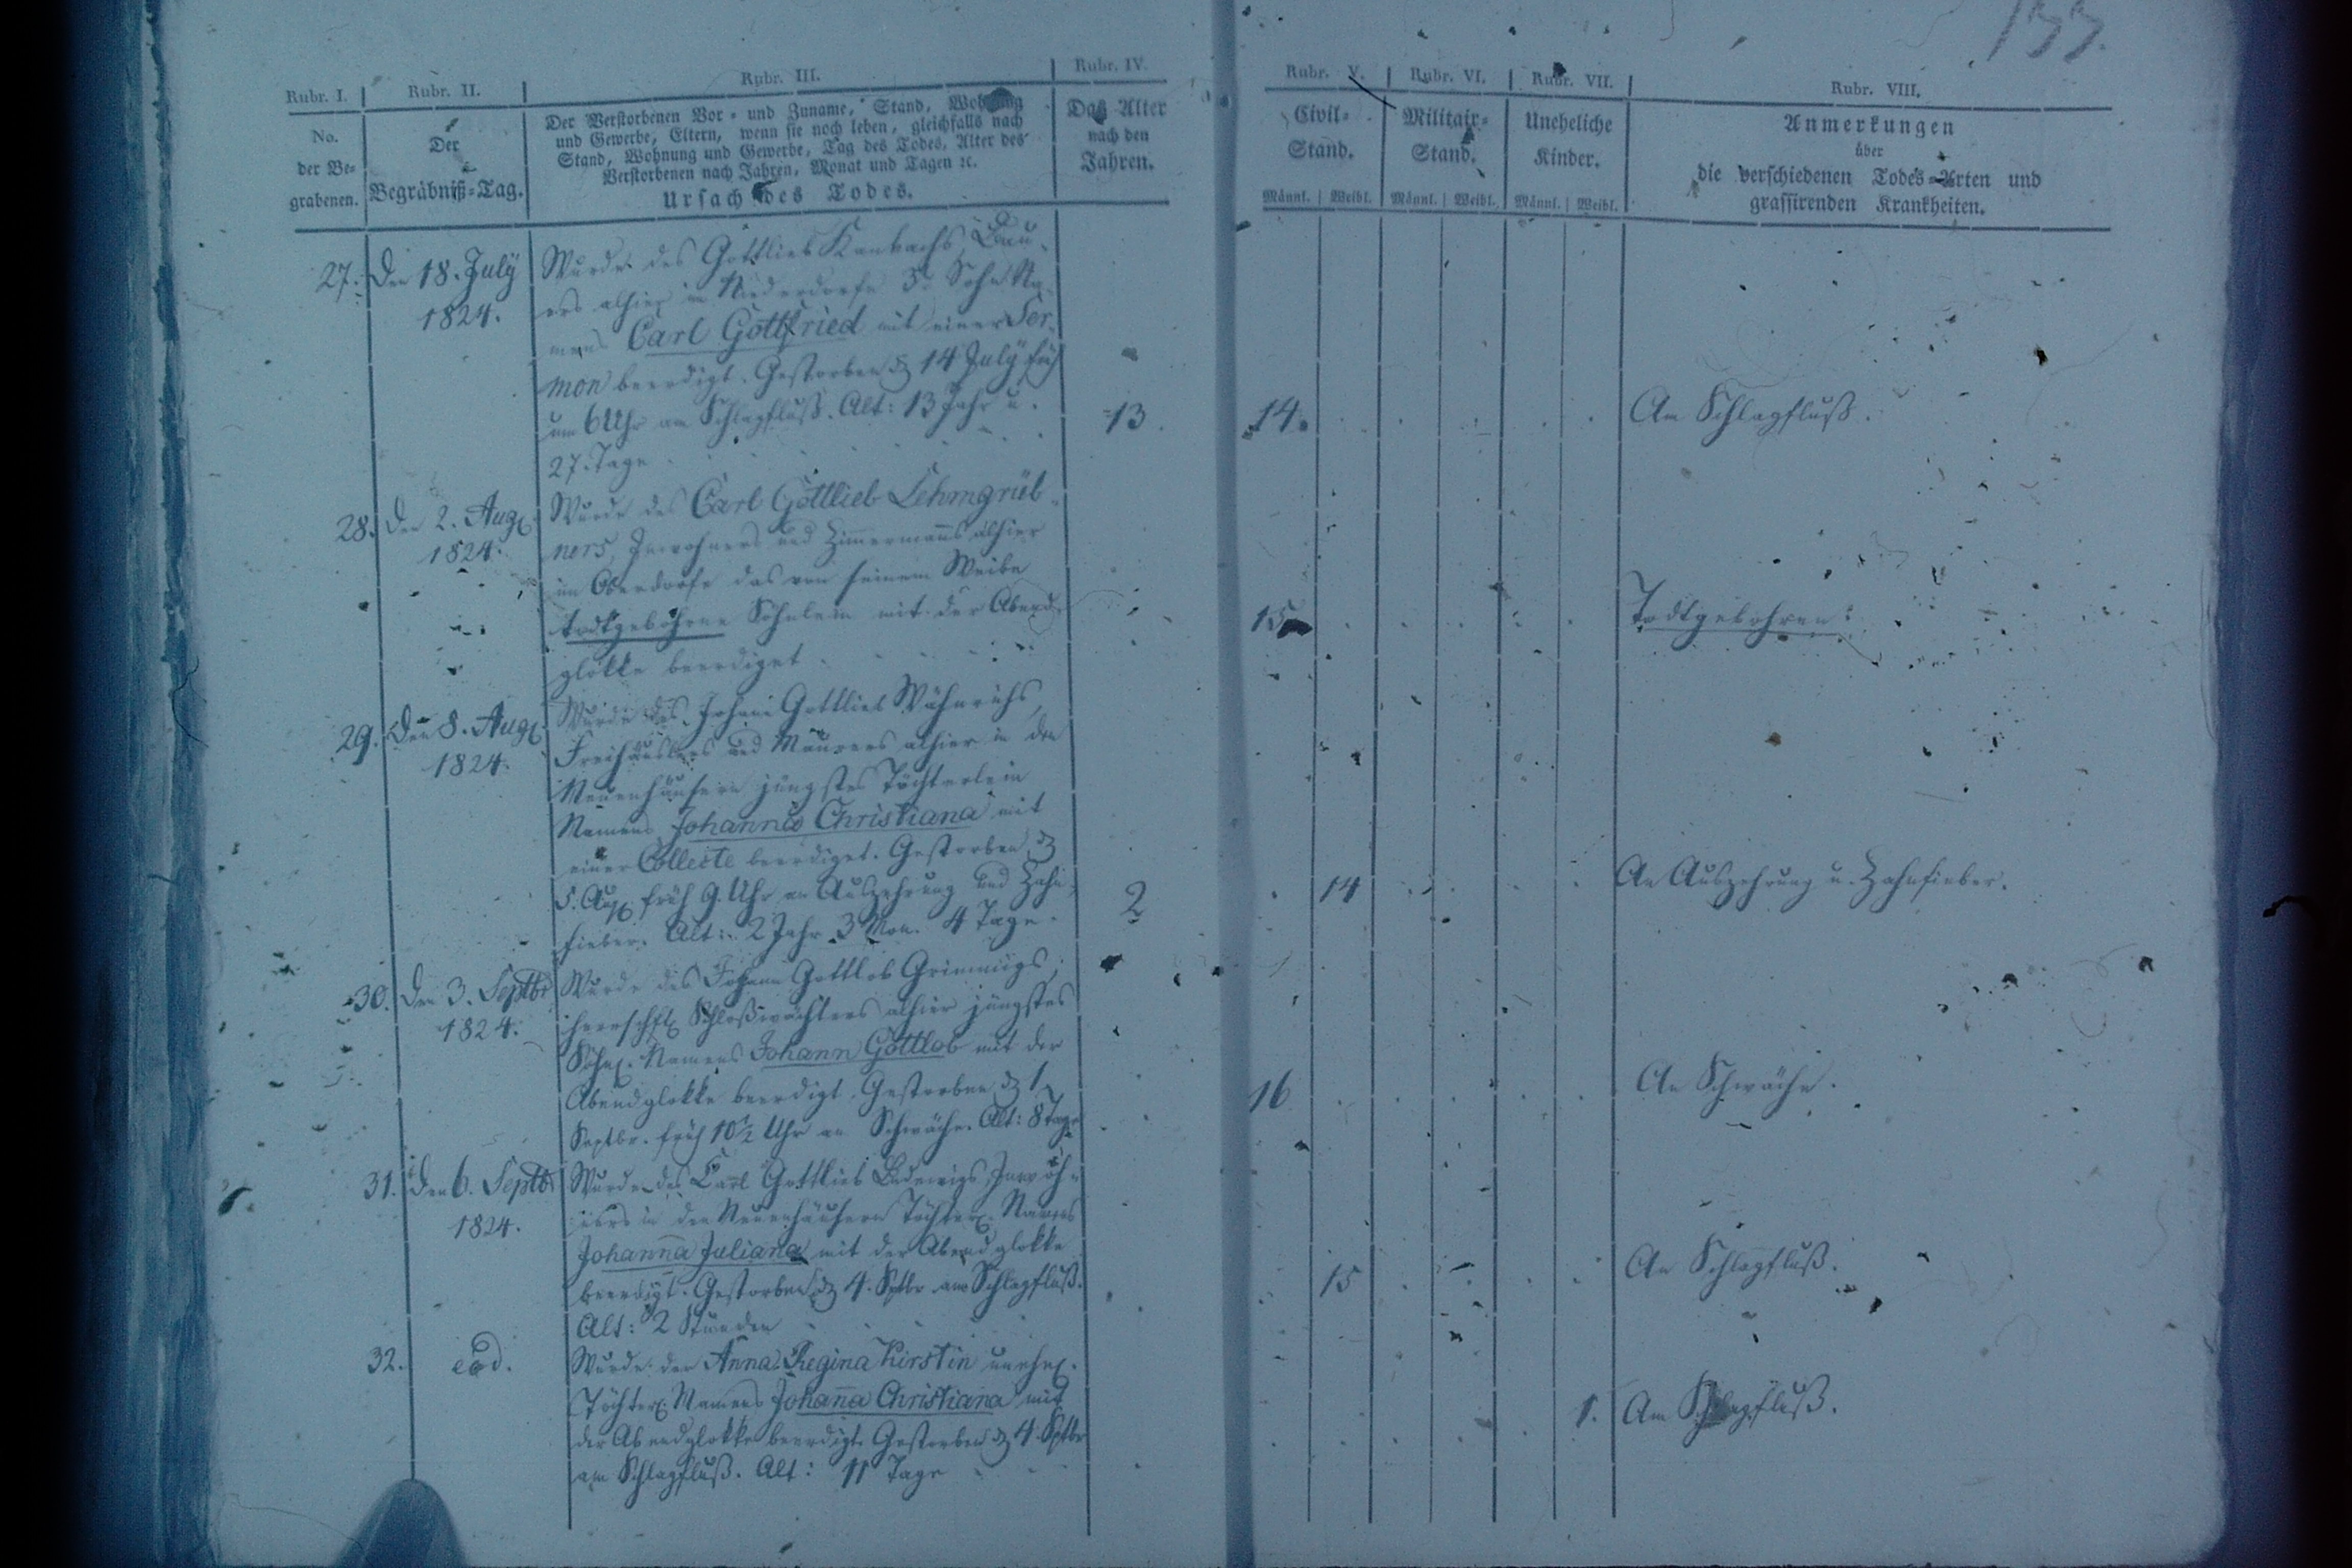 133.
Rubr. I. Rubr. II. Rubr. III. Rubr. IV. Rubr. V. Rubr. VI. Rubr. VII. Rubr. VIII.
No.
der Be-
grabenen.
Der
Begräbniß-Tag.
Der Verstorbenen Vor- und Zuname, Stand, Wohnung
und Gewerbe, Eltern, wenn sie noch leben, gleichfalls nach
Stand, Wohnung und Gewerbe, Tag des Todes, Alter des
Verstorbenen nach Jahren, Monat und Tagen ꝛc.
Ursach des Todes.
Das Alter
nach den
Jahren.
Civil-
Stand.
Männl. | Weibl.
Militair-
Stand.
Männl. | Weibl.
Uneheliche
Kinder.
Männl. | Weibl.
Anmerkungen
über
die verschiedenen Todes-Arten und
grassirenden Krankheiten.
27. Den 18. July
1824.
Wurde des Gottlieb Kanbachs, Bau-
ers alhier im Niederdorfe 3r Sohn Na-
mens Carl Gottfried mit einer Ser-
mon beerdigt. Gestorben d. 14 July früh
um 6 Uhr am Schlagfluß. Alt: 13 Jahr u.
27. Tage
13
14.
Am Schlagfluß.
28. Den 2. Aug.
1824.
Wurde des Carl Gottlieb Lehmgrüb-
ners, Inwohners und Zimmermanns alhier
im Oberdorfe das von seinem Weibe
todtgebohrne Söhnlein mit der Abend-
glokke beerdiget
15
Todtgebohren.
29. Den 8. Aug.
1824.
Wurde des Johann Gottlieb Wähnrichs,
Freihäuslers und Maurers alhier in den
Neuenhäusern jüngstes Töchterlein
Namens Johanna Christiana mit
einer Collecte beerdiget. Gestorben d.
5. Aug. früh 9. Uhr an Auszehrung und Zahn-
fieber. Alt: 2 Jahr 3 Mon. 4 Tage.
2
14
An Auszehrung u. Zahnfieber.
30. Den 3. Septbr
1824.
Wurde des Johann Gottlob Grimmigs,
herrschftl. Schloßwächters alhier jüngstes
Söhnl. Namens Johann Gottlob mit der
Abendglokke beerdigt. Gestorben d. 1
Septbr. früh 10½ Uhr an Schwäche. Alt: 8 Tage
16
An Schwäche.
31. Den 6. Septbr
1824.
Wurde des Carl Gottlieb Ludewigs, Inwoh-
ners in den Neuenhäusern Töchterl. Namens
Johanna Juliana mit der Abendglokke
beerdigt. Gestorben d. 4. Sptbr am Schlagfluß.
Alt: 2 Stunden
15
An Schlagfluß.
32. eod.
Wurde der Anna Regina Kirstin unehel.
Töchterl. Namens Johanna Christiana mit
der Abendglokke beerdigt. Gestorben d. 4. Sptbr
am Schlagfluß. Alt: 11 Tage
1.
Am Schlagfluß.